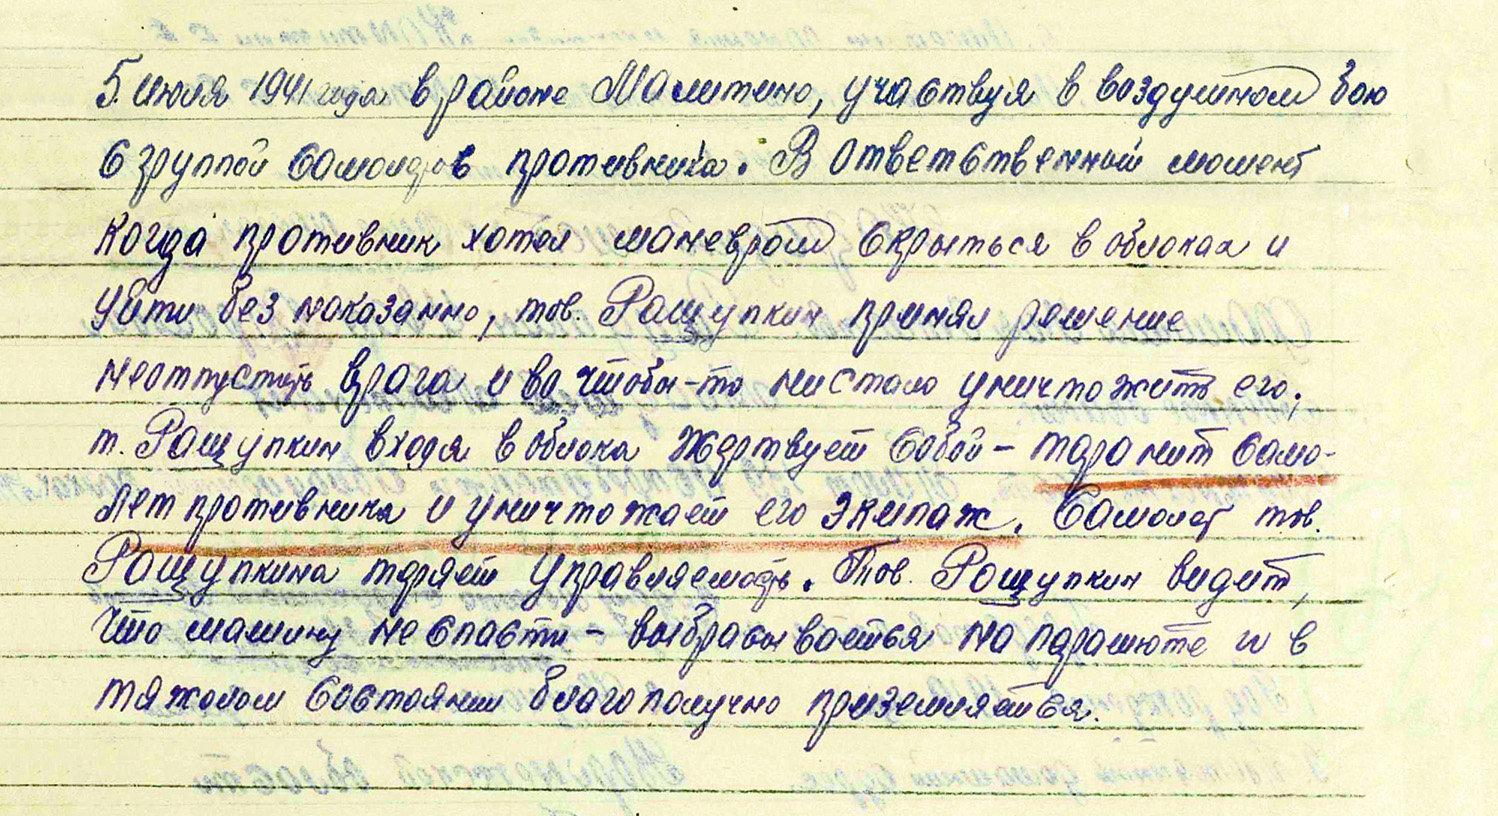 5 июля 1941 года в районе Малитино, участвуя в воздушном бою
с группой самолетов противника. В ответственный момент
когда противник хотел маневром скрыться в облаках и
уйти без наказанно, тов. Ращупкин принял решение
неотпустить врага и во чтобы-то нистало уничтожить его.
т. Ращупкин входя в облака жертвует собой - таранит само-
лет противника и уничтожает его экипаж. Самолет тов.
Ращупкина теряет управляемость. Тов. Ращупкин видит,
что машину не спасти - выбрасываеться на парашюте и в
тяжолом состоянии благополучно приземляется.